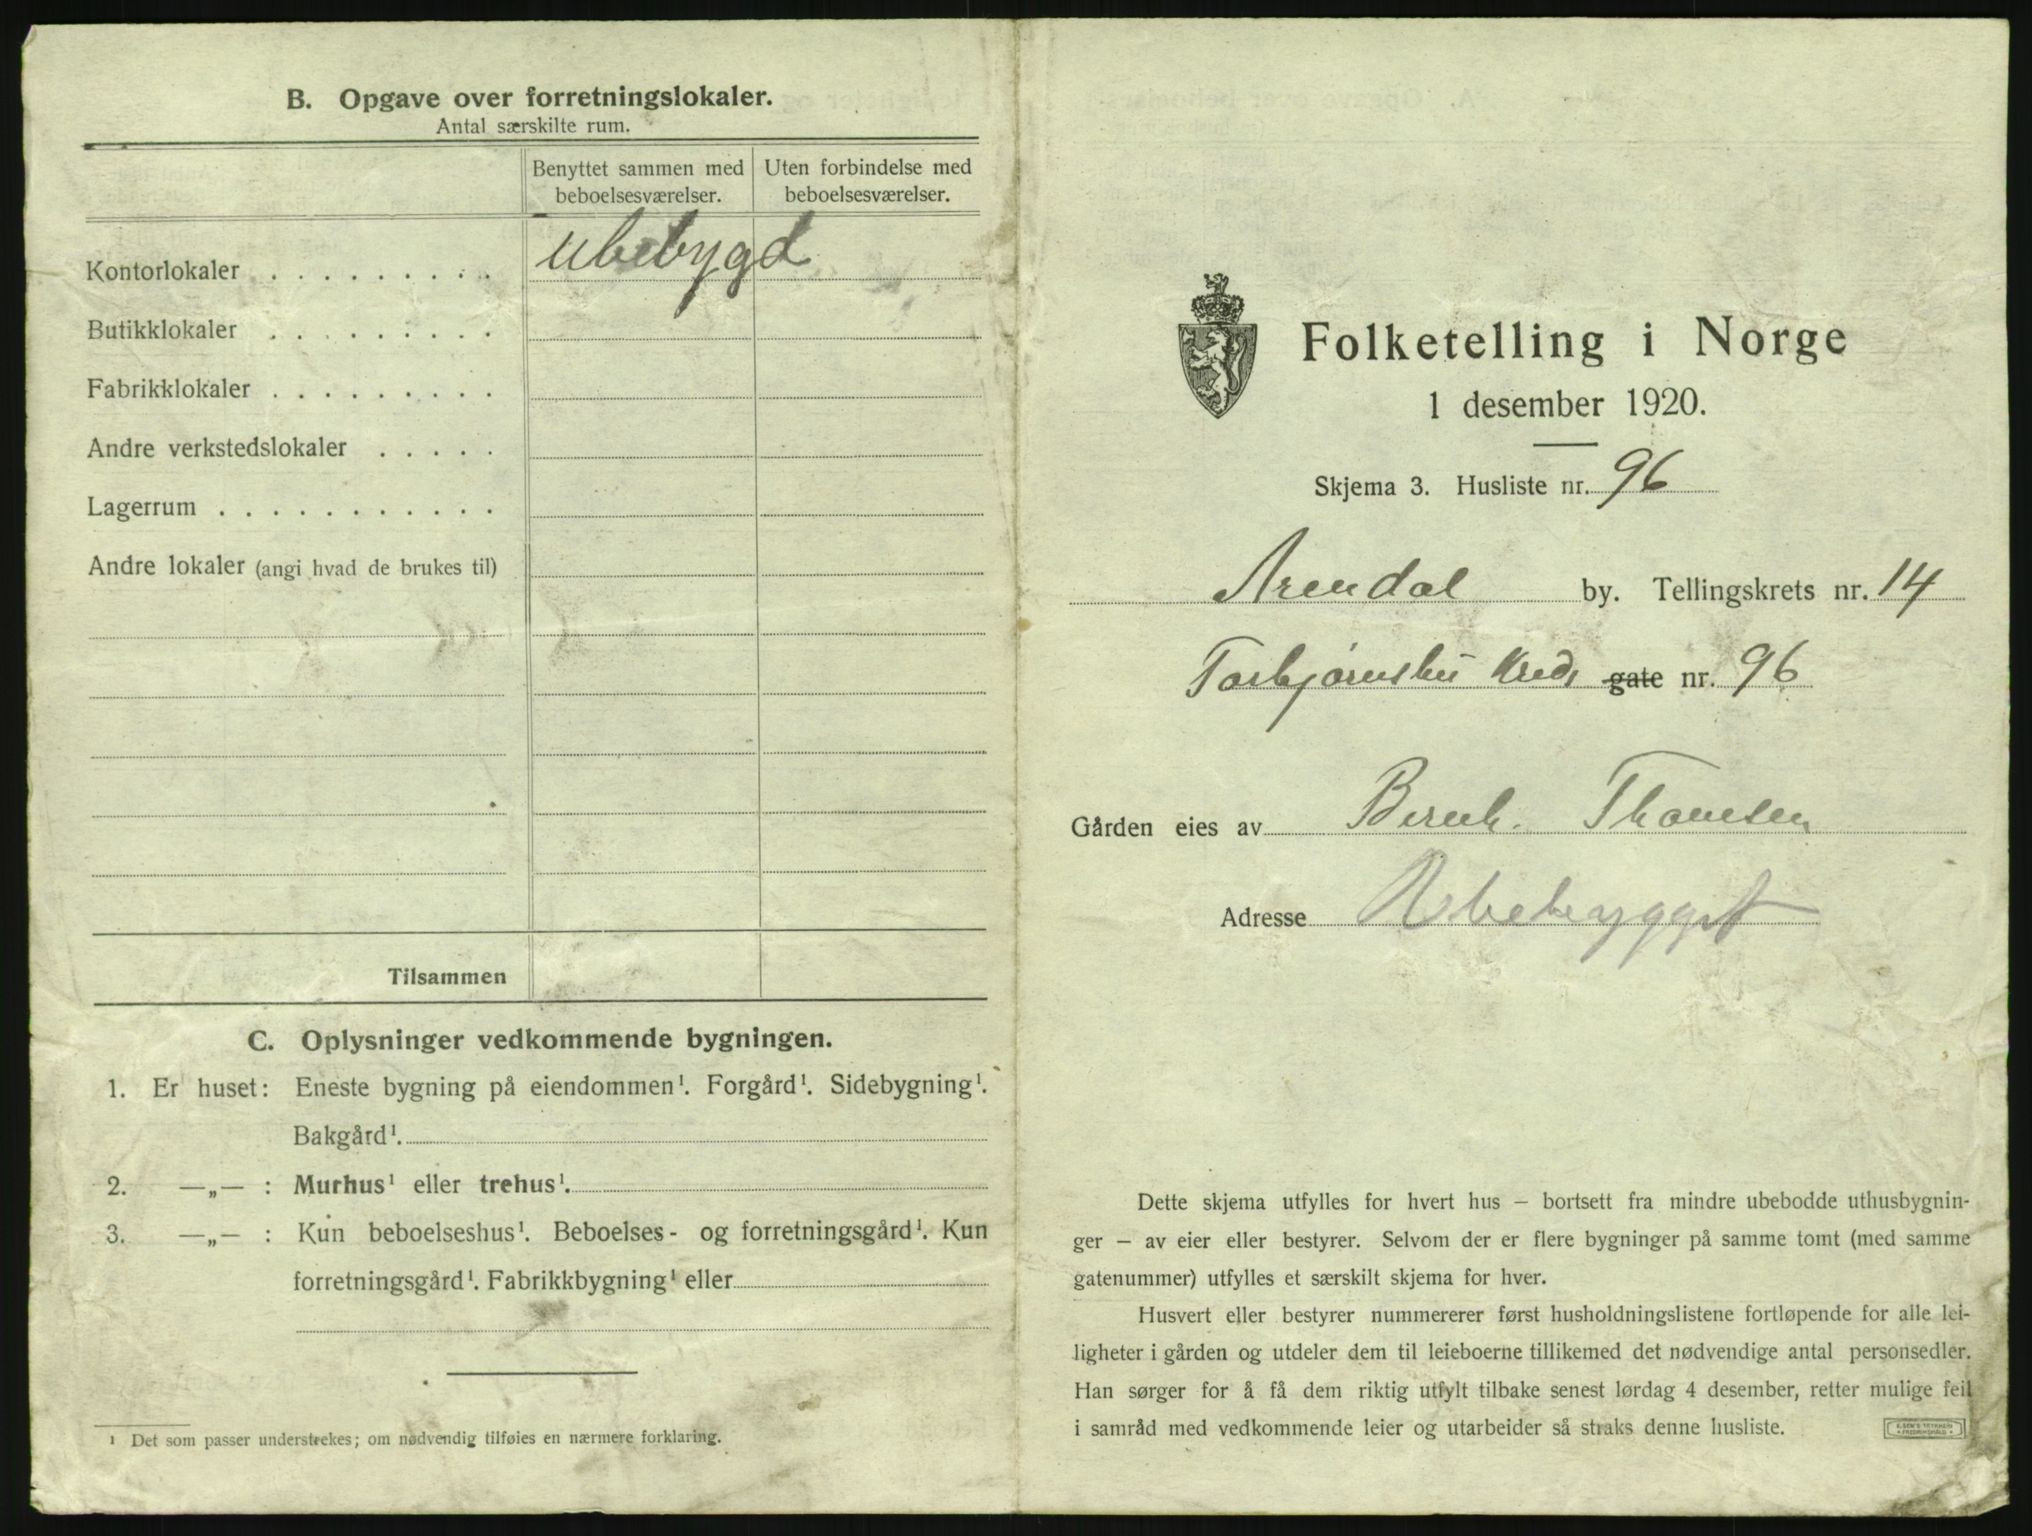 B. Opgave over forretningslokaler.
Antal særskilte rum.
Benyttet sammen med beboelsesværelser.
Uten forbindelse med beboelsesværelser.
Kontorlokaler . . . . . . . . . ubebygd
Butikklokaler . . . . . . . . .
Fabrikklokaler . . . . . . . . .
Andre verkstedslokaler . . . . .
Lagerrum . . . . . . . . . . .
Andre lokaler (angi hvad de brukes til)
Tilsammen
C. Oplysninger vedkommende bygningen.
1. Er huset: Eneste bygning på eiendommen¹. Forgård¹. Sidebygning¹.
Bakgård¹.
2. —„— : Murhus¹ eller trehus¹.
3. —„— : Kun beboelseshus¹. Beboelses- og forretningsgård¹. Kun
forretningsgård¹. Fabrikkbygning¹ eller
¹ Det som passer understrekes; om nødvendig tilføies en nærmere forklaring.
Folketelling i Norge
1 desember 1920.
Skjema 3. Husliste nr. 96
Arendal by. Tellingskrets nr. 14
Torbjørnsbu Kreds gate nr. 96
Gården eies av Bernh. Thomsen
Adresse Ubebygget
Dette skjema utfylles for hvert hus – bortsett fra mindre ubebodde uthusbygnin-
ger – av eier eller bestyrer. Selvom der er flere bygninger på samme tomt (med samme
gatenummer) utfylles et særskilt skjema for hver.
Husvert eller bestyrer nummererer først husholdningslistene fortløpende for alle lei-
ligheter i gården og utdeler dem til leieboerne tillikemed det nødvendige antal personsedler.
Han sørger for å få dem riktig utfylt tilbake senest lørdag 4 desember, retter mulige feil
i samråd med vedkommende leier og utarbeider så straks denne husliste.